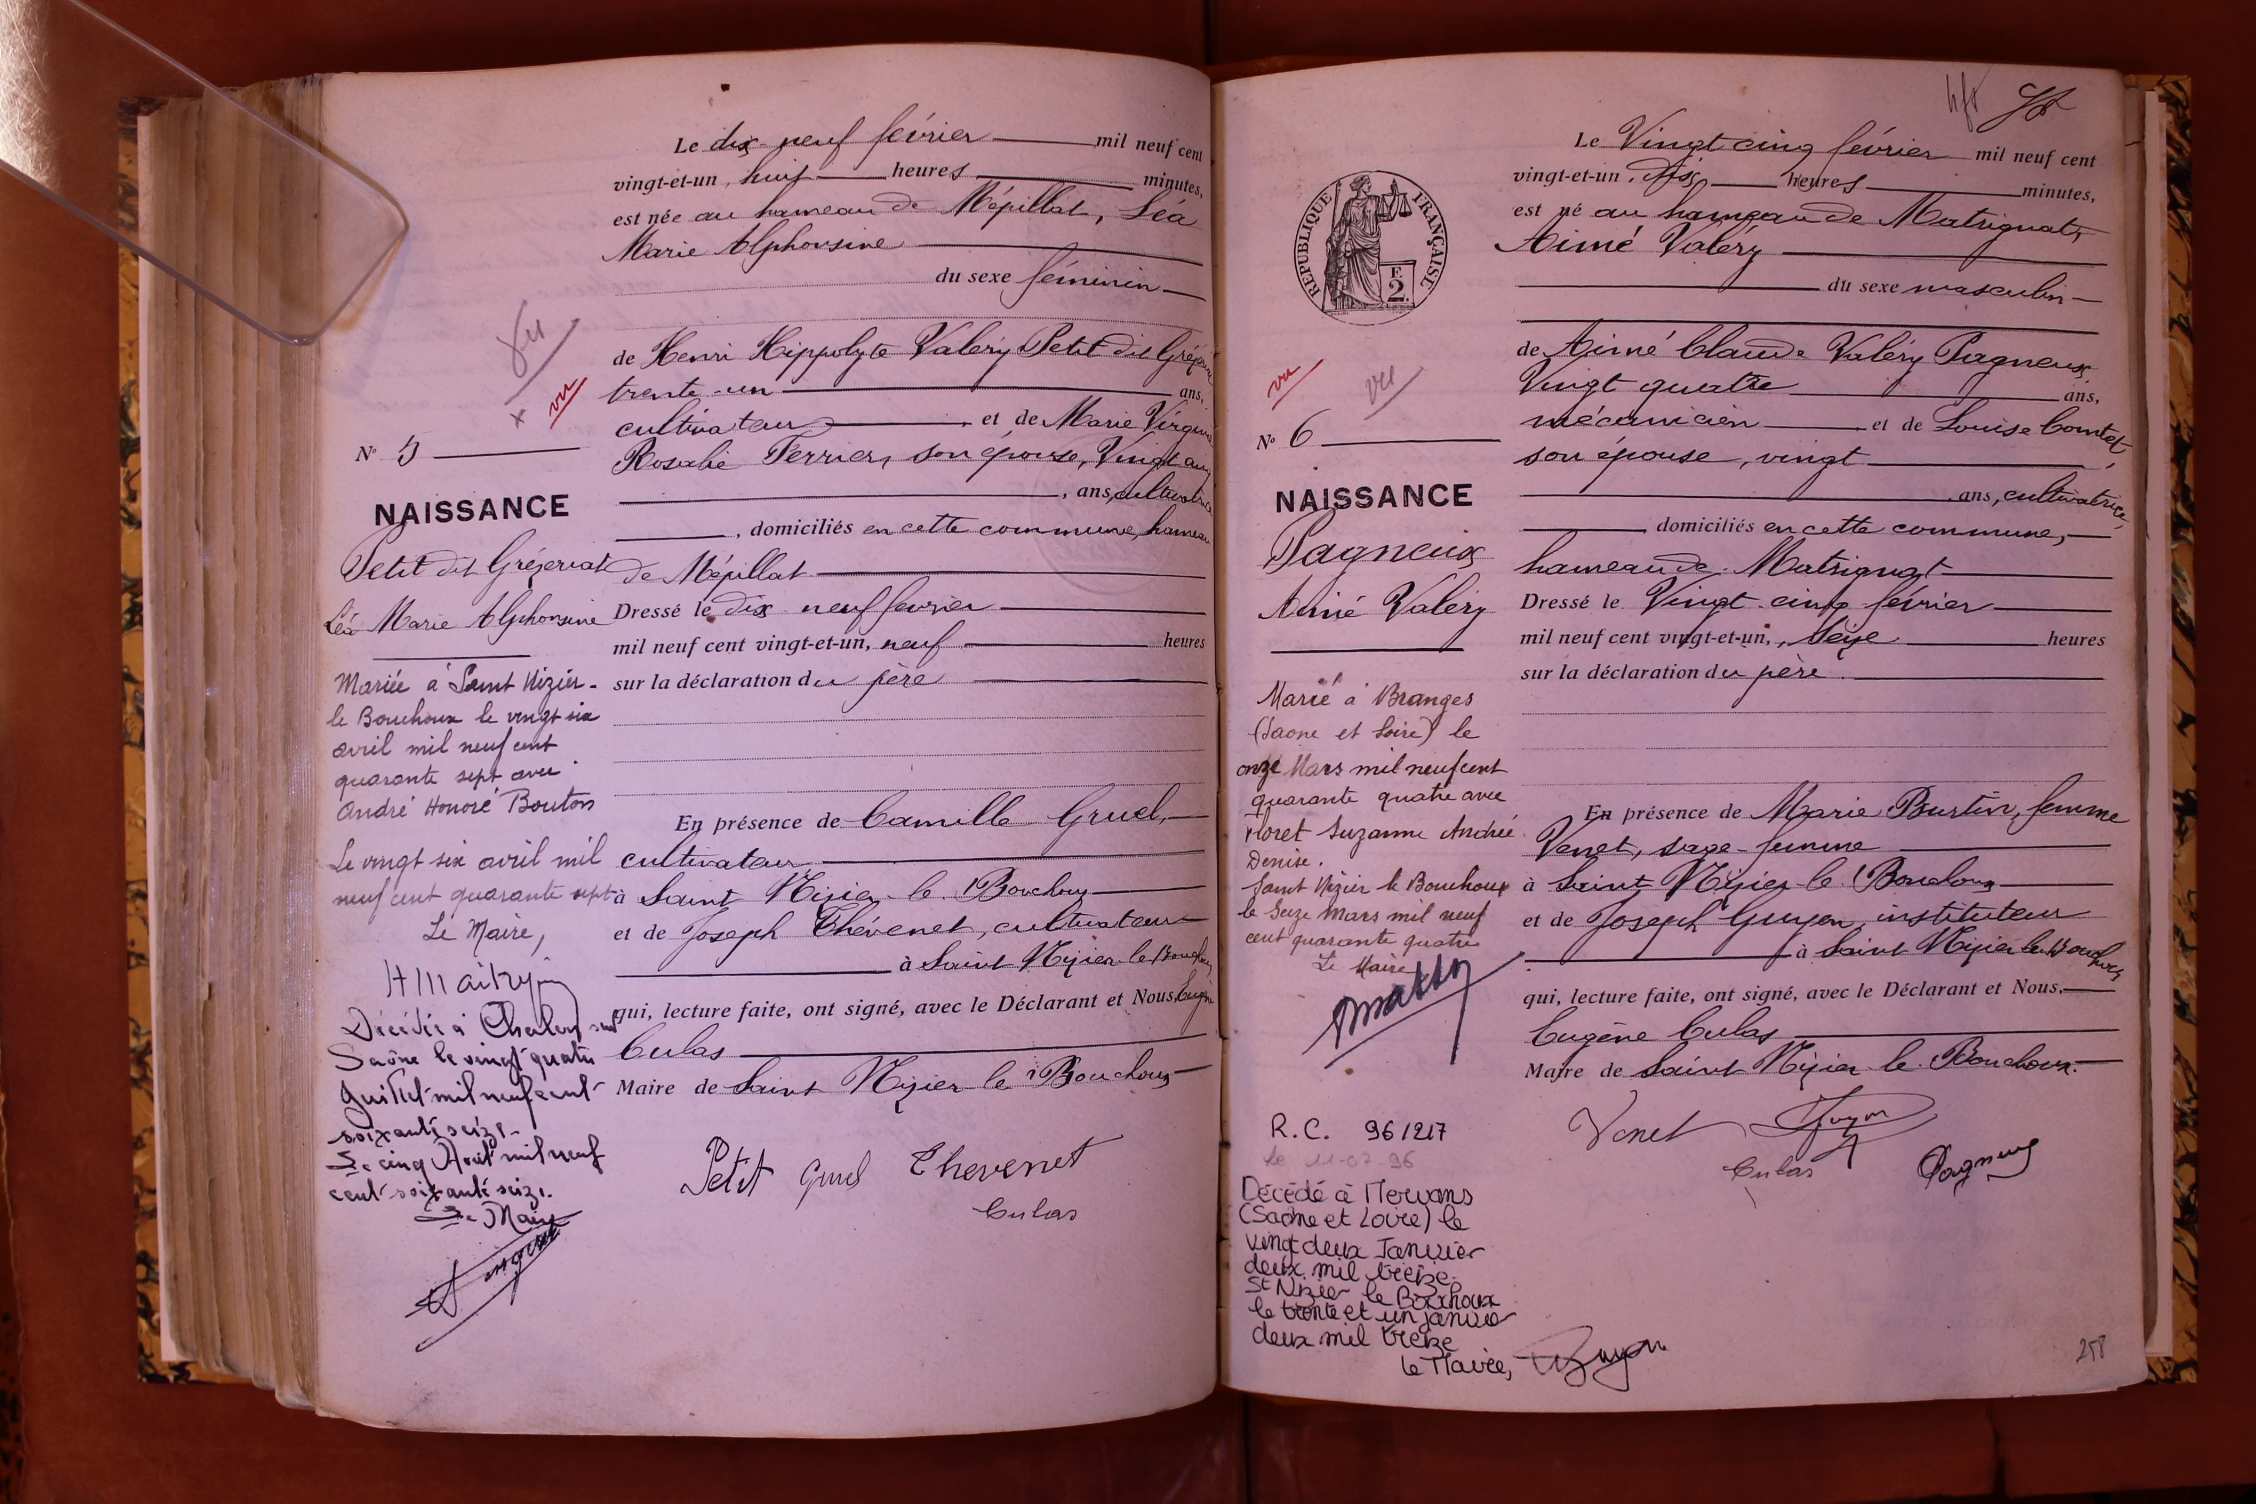 Le dix-neuf février mil neuf cent
vingt-et-un, huit heures minutes,
est née au hameau de Mépillat, Léa
Marie Alphonsine
du sexe féminin
de Henri Hippolyte Valéry Petit dit Grézeriat
trente-un ans,
cultivateur et de Marie Virginie
Rosalie Terrier, son épouse, Vingt
, ans, cultivatrice
, domiciliés en cette commune, hameau
de Mépillat
Dressé le dix neuf février
mil neuf cent vingt-et-un, neuf heures
sur la déclaration du père
En présence de Camille Gruel,
cultivateur
à Saint Nizier-le-Bouchoux
et de Joseph Thévenet, cultivateur
à Saint Nizier-le-Bouchoux
qui, lecture faite, ont signé, avec le Déclarant et Nous, Eugène
Culas
Maire de Saint Nizier-le-Bouchoux
Petit Gruel Thevenet
Culas
vu
x
vu
N° 5
NAISSANCE
Petit dit Grézeriat
Léa Marie Alphonsine
Mariée à Saint Nizier-
le Bouchoux le vingt six
avril mil neuf cent
quarante sept avec
André Honoré Bouton
Le vingt six avril mil
neuf cent quarante sept
Le Maire,
Décédée à Chalon sur
Saône le vingt quatre
Juillet mil neuf cent
soixante seize.
Le cinq Août mil neuf
cent soixante seize.
Le Maire
Le Vingt cinq février mil neuf cent
vingt-et-un, dix heures minutes,
est né au hameau de Matrignat,
Aimé Valéry
du sexe masculin
de Aimé Claude Valéry Pagneux,
Vingt quatre ans,
mécanicien et de Louise Comtet
son épouse, vingt
ans, cultivatrice,
domiciliés en cette commune,
hameau de Matrignat
Dressé le Vingt-cinq février
mil neuf cent vingt-et-un, seize heures
sur la déclaration du père
En présence de Marie Burtin, femme
Venet, sage-femme
à Saint Nizier-le-Bouchoux
et de Joseph Guyon, instituteur
à Saint Nizier-le-Bouchoux
qui, lecture faite, ont signé, avec le Déclarant et Nous,
Eugène Culas
Maire de Saint Nizier-le-Bouchoux.
Venet Guyon
Culas Pagneux
RÉPUBLIQUE FRANÇAISE
F.
2.
vu
vu
N° 6
NAISSANCE
Pagneux
Aimé Valéry
Marié à Branges
(Saone et Loire) le
onze Mars mil neuf cent
quarante quatre avec
Floret Suzanne Andrée
Denise.
Saint Nizier le Bouchoux
le Seize Mars mil neuf
cent quarante quatre
Le Maire
R.C. 96/217
le 11-07-96
Décédé à Mervans
(Saône et Loire) le
vingt deux Janvier
deux mil treize.
St Nizier le Bouchoux
le trente et un janvier
deux mil treize
le Maire,
258